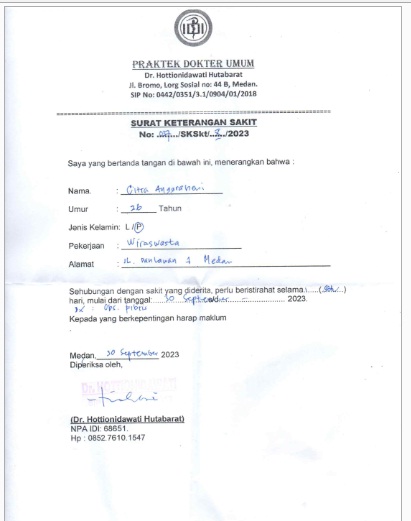 PRAKTEK DOKTER UMUM
Dr. Hottionidawati Hutabarat
Jl. Bromo, Lorg Sosial no: 44 B, Medan.
SIP No: 0442/0351/3.1/0904/01/2018
SURAT KETERANGAN SAKIT
No: /SKSkt/ /2023
Saya yang bertanda tangan di bawah ini, menerangkan bahwa :
Nama. : Citra Anggraheni
Umur : 26 Tahun
Jenis Kelamin: L /P
Pekerjaan : Wiraswasta
Alamat : JL. 1 Medan
Sehubungan dengan sakit yang diderita, perlu beristirahat selama : ( )
hari, mulai dari tanggal: 30 September 2023.
Kepada yang berkepentingan harap maklum
Medan, 30 September 2023
Diperiksa oleh,
(Dr. Hottionidawati Hutabarat)
NPA IDI: 68651.
Hp : 0852.7610.1547